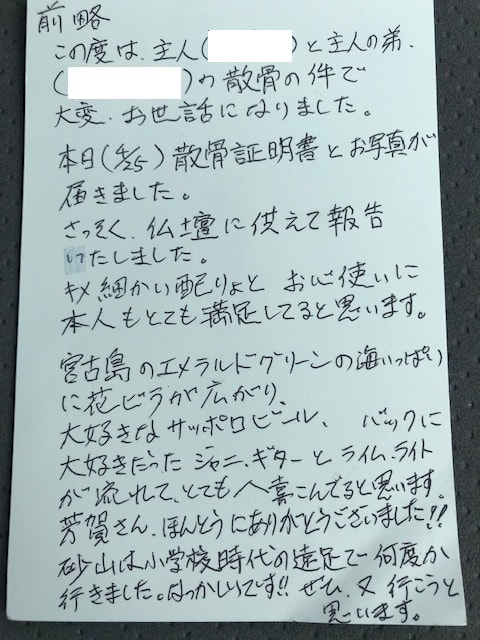 前略
この度は、主人( )と主人の弟、
( )の散骨の件で
大変、お世話になりました。
本日(4/25)散骨証明書とお写真が
届きました。
さっそく、仏壇に供えて報告
いたしました。
キメ細かい配りょと お心使いに
本人もとても満足してると思います。
宮古島のエメラルドグリーンの海いっぱい
に花びらが広がり、
大好きなサッポロビール、 バックに
大好きだった ジャニ、ギターと ライム、ライト
が流れて、とても人喜こんでると思います。
芳賀さん、ほんとうにありがとうございました!!
砂山は小学校時代の遠足で何度か
行きました。なつかしいです!! ぜひ、又 行こうと
思います。